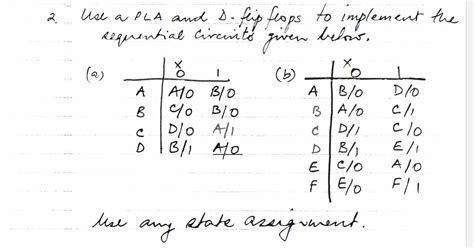 2. Use a PLA and D-flip flops to implement the
sequential circuits given below.
(a) x (b) x
0 1 0 1
A A/0 B/0 A B/0 D/0
B C/0 B/0 B A/0 C/1
C D/0 A/1 C D/1 C/0
D B/1 A/0 D B/1 E/1
E C/0 A/0
F E/0 F/1
Use any state assignment.